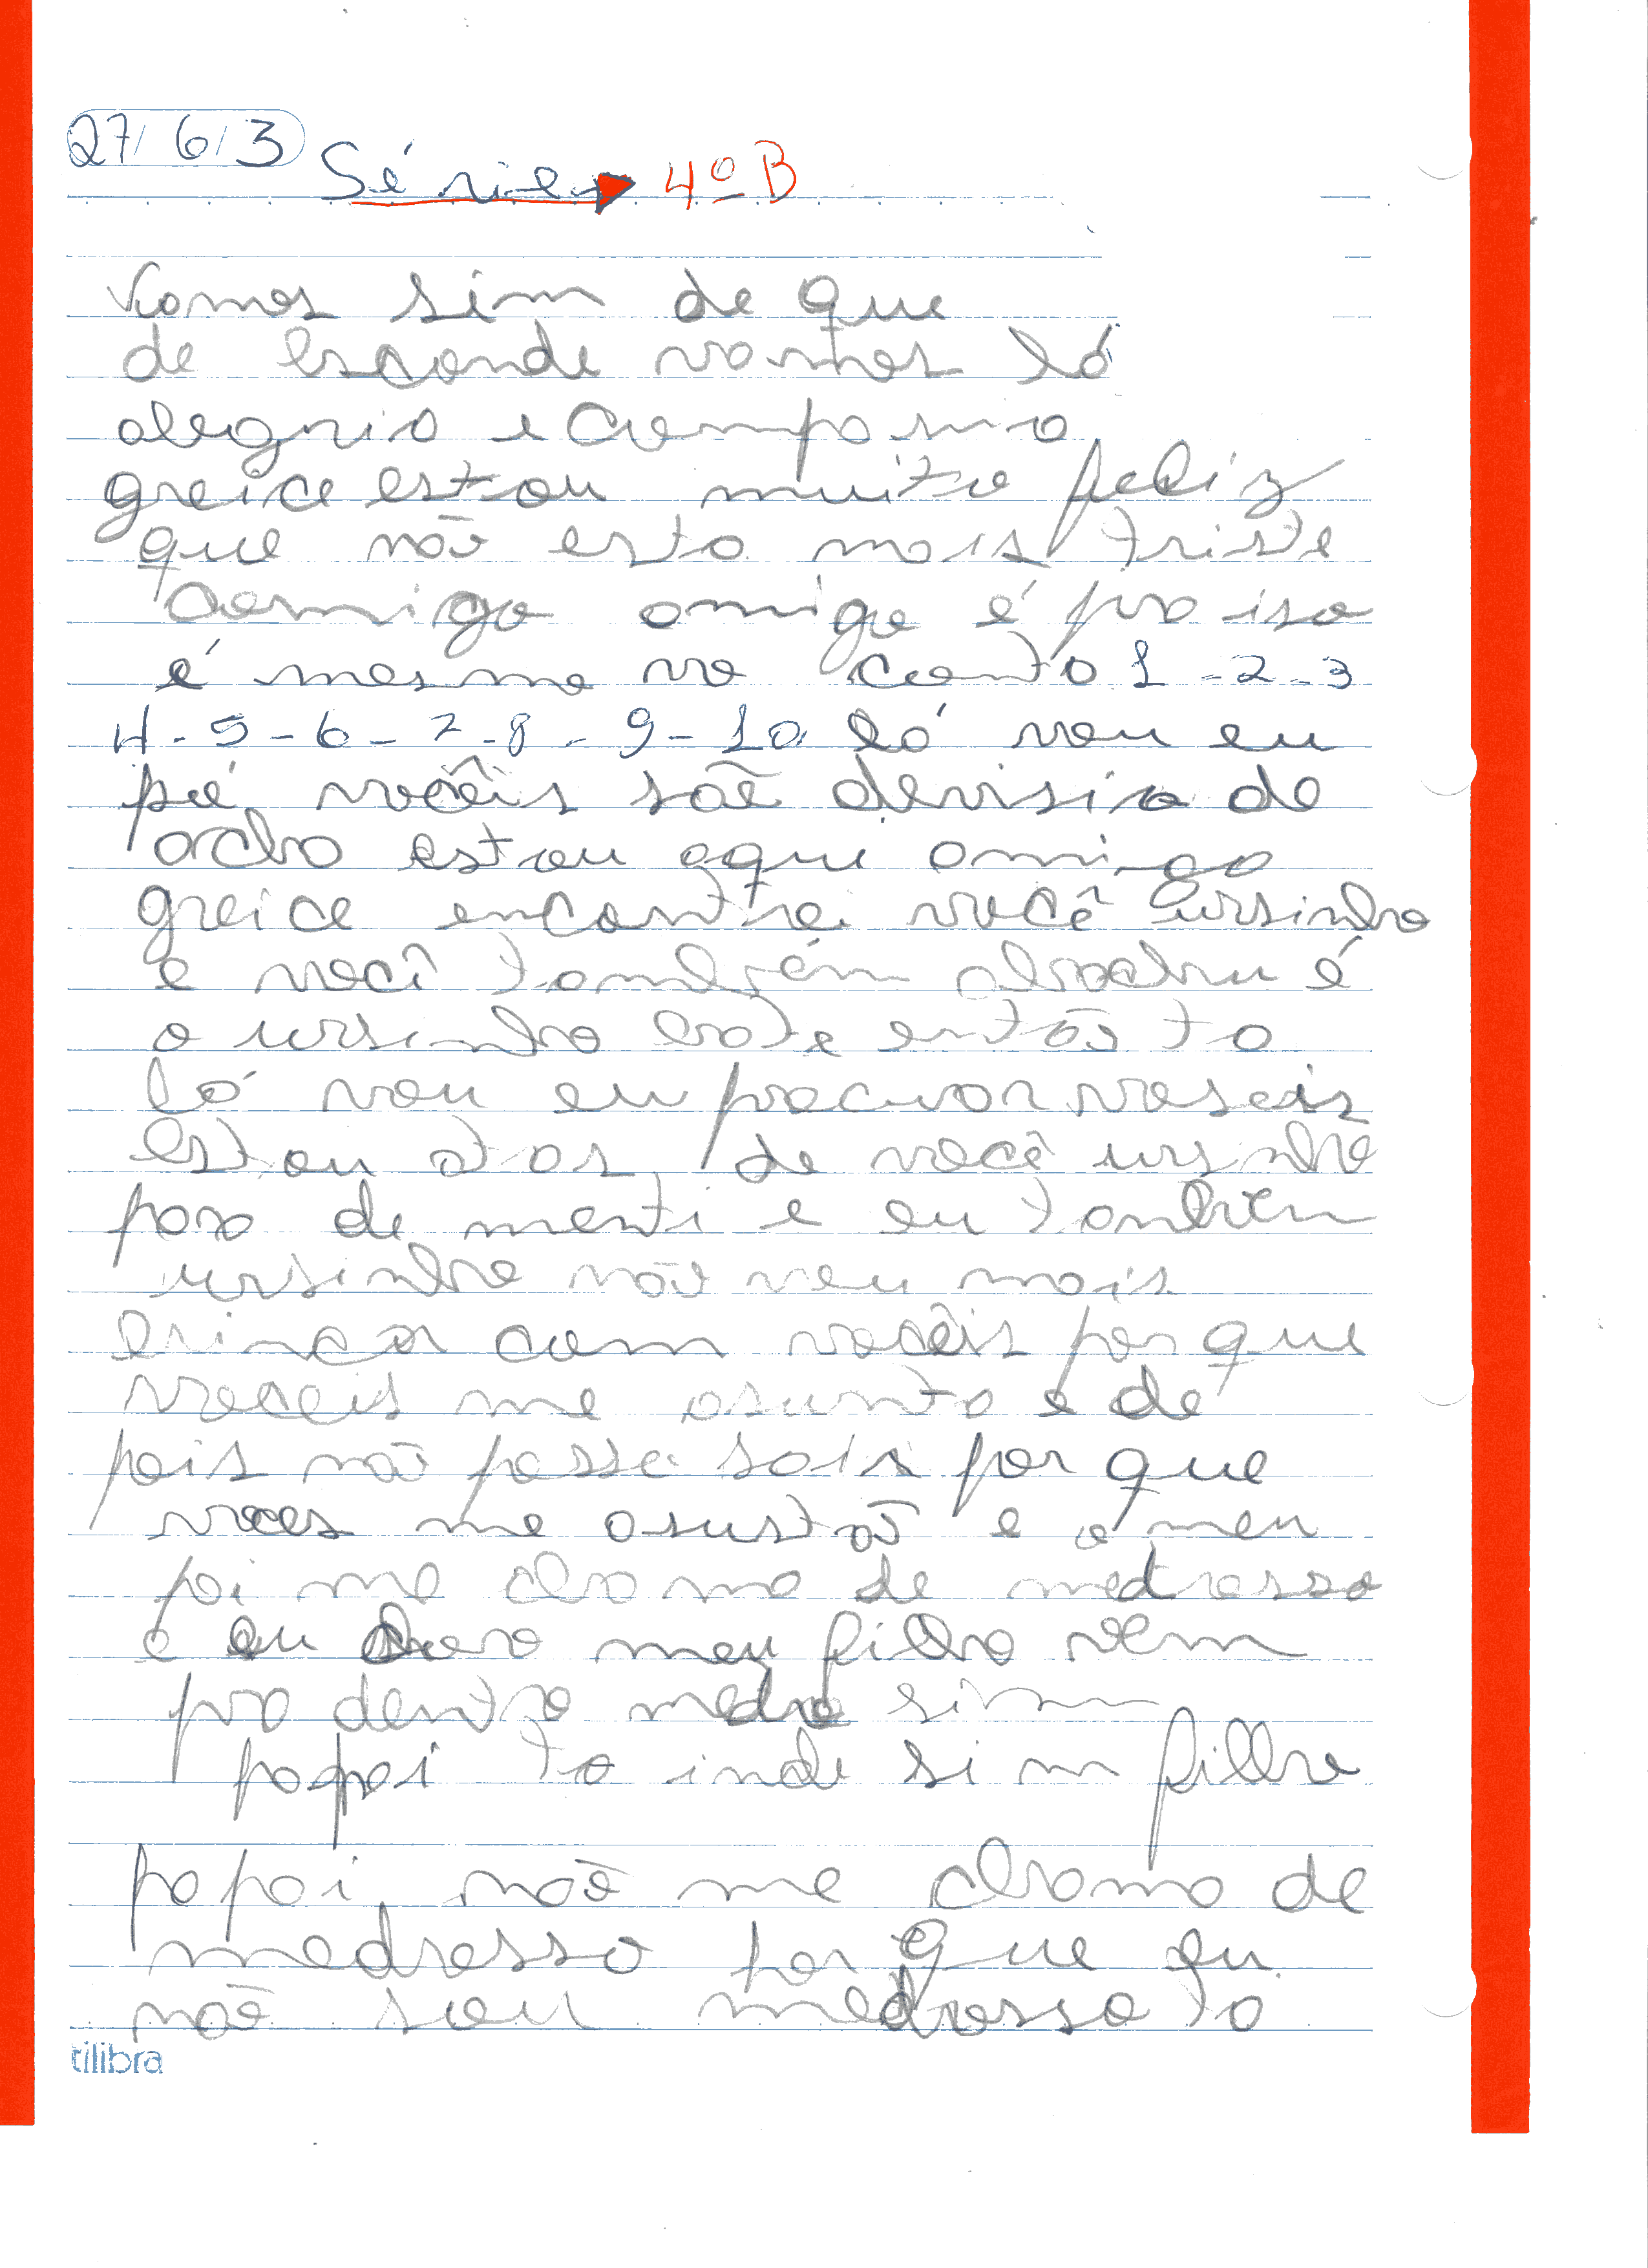 27/ 6/ 3
Série → 4º B
Vamos sim de que
de esconde vamos lá
alegria e compania
greice estou muito feliz
que não esta mais triste
comigo amigo é pra isso
é mesmo va conto 1-2-3
4-5-6-7-8-9-10 lá vou eu
pá vocêis são de
acho estou aqui amigo
greice encontrei você ursinho
e você tambyém é
o ursinho bate então ta
lá vou eu procurar voseis
estou atas de você ursinho
para de menti e eu tambem
ursinho não vou mais
brincar com vocêis por que
voceis me asunta e de
pois não posso sais por que
voces me asustão e o meu
pai me chama de medrosso
e eu choro meu filho vem
pra dentro medro sim
papai to indo sim filho
papai não me chama de
medrosso por que eu
não sou medrosso ta
tilibra